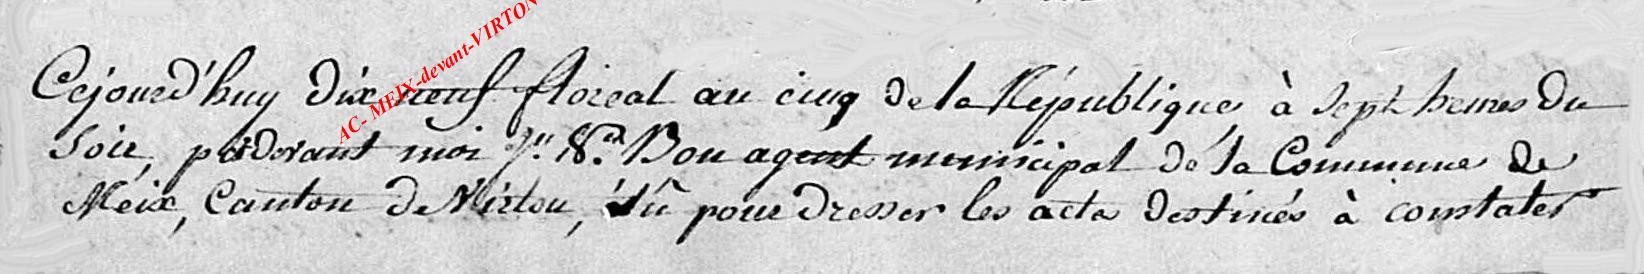 AC- MEIX-devant-VIRTON
Cejourd'huy dix neuf floreal an cinq de la République à Sept heures du
Soir, pardevant moi Bon agent municipal de la Commune de
Meix, Canton de Virton, élû pour dresser les actes destinés à constater